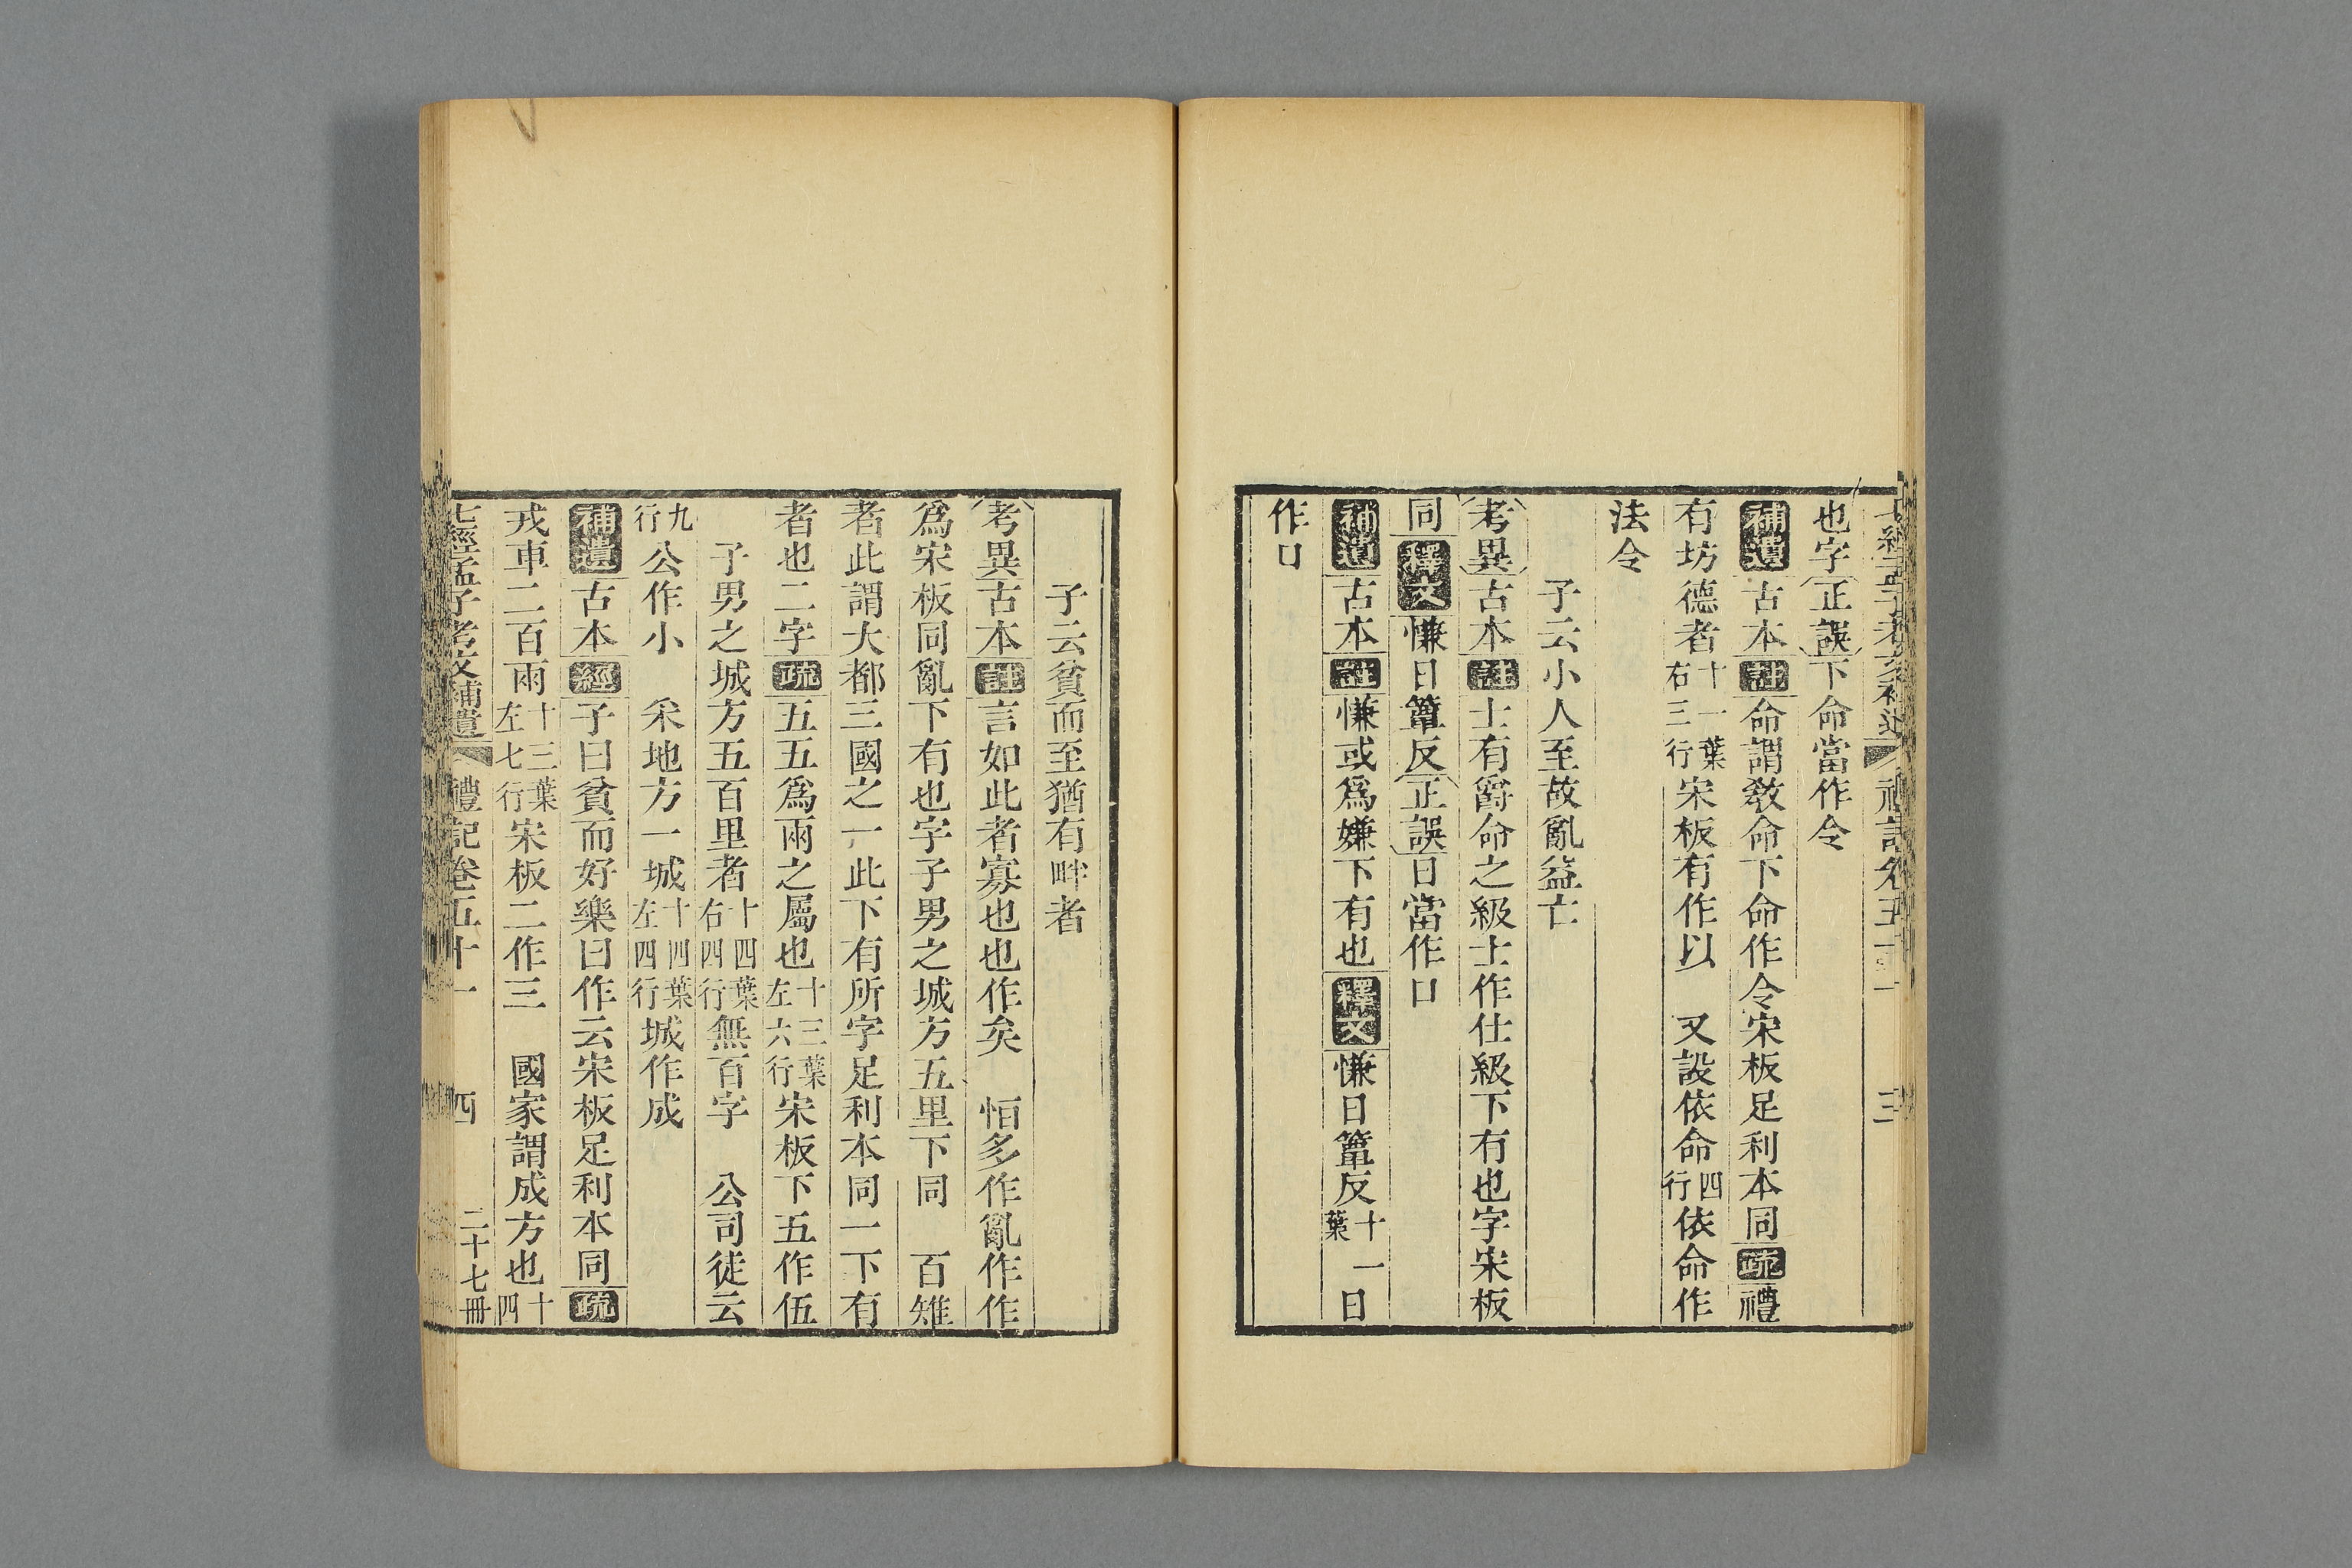 也字正誤下命當作令
補遺古本註命謂敎命下命作令宋板足利本同疏禮
有坊德者十一葉右三行宋板有作以 又設依命四行依命作
法令
子云小人至故亂益亡
考異古本註士有爵命之級士作仕級下有也字宋板
同釋文慊日簟反正誤日當作口
補遺古本註慊或爲嫌下有也釋文慊日簟反十一葉日
作口
三
子云貧而至猶有畔者
考異古本註言如此者寡也也作矣 恒多作亂作作
爲宋板同亂下有也字子男之城方五里下同 百雉
者此謂大都三國之一此下有所字足利本同一下有
者也二字疏五五爲兩之屬也十三葉左六行宋板下五作伍
子男之城方五百里者十四葉右四行無百字 公司徒云
九行公作小 采地方一城十四葉左四行城作成
補遺古本經子曰貧而好樂曰作云宋板足利本同疏
戎車二百兩十三葉左七行宋板二作三 國家謂成方也十四
七經孟子考文補遺 禮記卷五十一 四 二十七冊